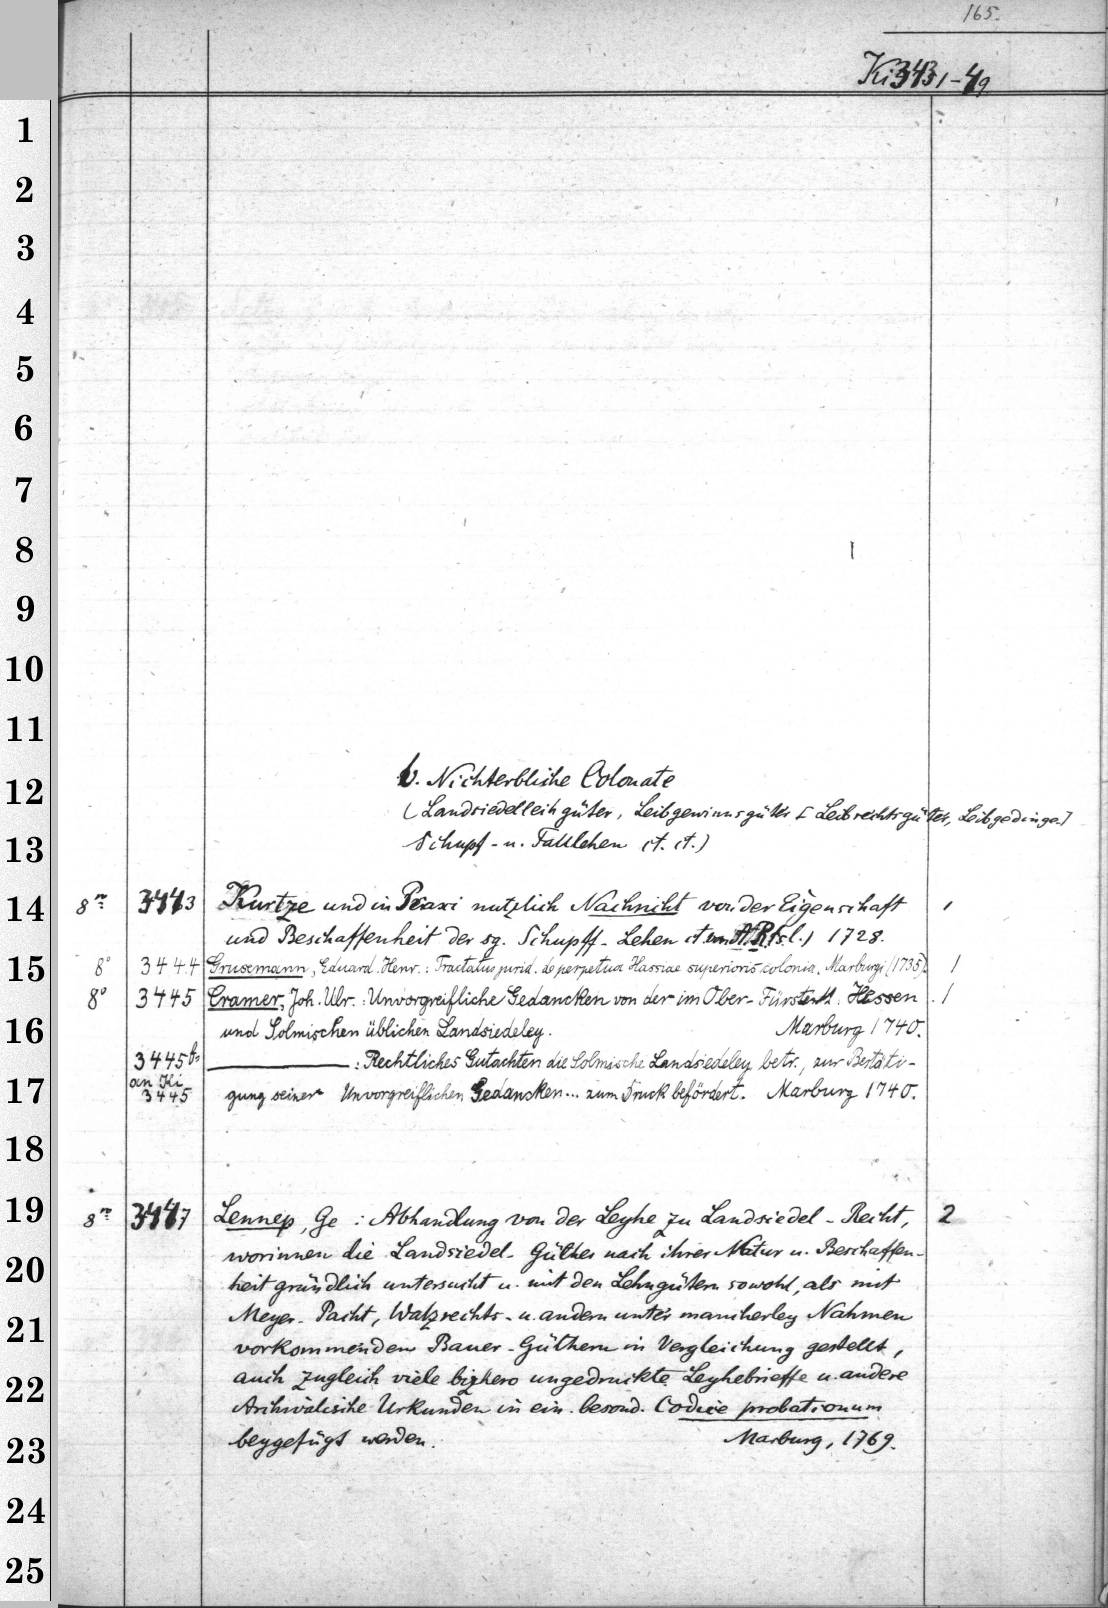 165.
Ki 3431-49
1
2
3
4
5
6
7
8
9
10
11
12
13
14
15
16
17
18
19
20
21
22
23
24
25
b. Nichterbliche Colonate
(Landsiedelleihgüter, Leibgewinnsgüter [Leibrechtsgüter, Leibgedinge]
Schupf- u. Fallehen ct. ct.)
8° 3443 Kurtze und in Praxi nutzlich Nachricht von der Eigenschaft 1
und Beschaffenheit der sg. Schupff-Lehen ct (s. l.) 1728.
8° 3444 Grusemann, Eduard. Henr.: Tractatus jurid. de perpetua Hassiae superioris colonia. Marburgi (1735). 1
8° 3445 Cramer, Joh. Ulr.: Unvorgreifliche Gedancken von der im Ober-Fürstenth. Hessen 1
und Solmischen üblichen Landsiedeley. Marburg 1740.
3445b ———: Rechtliches Gutachten die Solmische Landsiedeley betr., zur Bestäti-
an Ki
3445 gung seiner Unvorgreiflichen Gedancken... zum Druck befördert. Marburg 1740.
8° 3447 Lennep, Ge: Abhandlung von der Leyhe zu Landsiedel-Recht, 2
worinnen die Landsiedel-Güther nach ihrer Natur u. Beschaffen-
heit gründlich untersucht u. mit den Lehngütern sowohl, als mit
Meyer- Pacht, Watzrechts- u. andern unter mancherley Nahmen
vorkommenden Bauer-Güthern in Vergleichung gestellt,
auch zugleich viele bizhero ungedruckte Leyhebrieffe u. andere
Archivalische Urkunden in ein. besond. Codice probationum
beygefügt werden. Marburg, 1769.